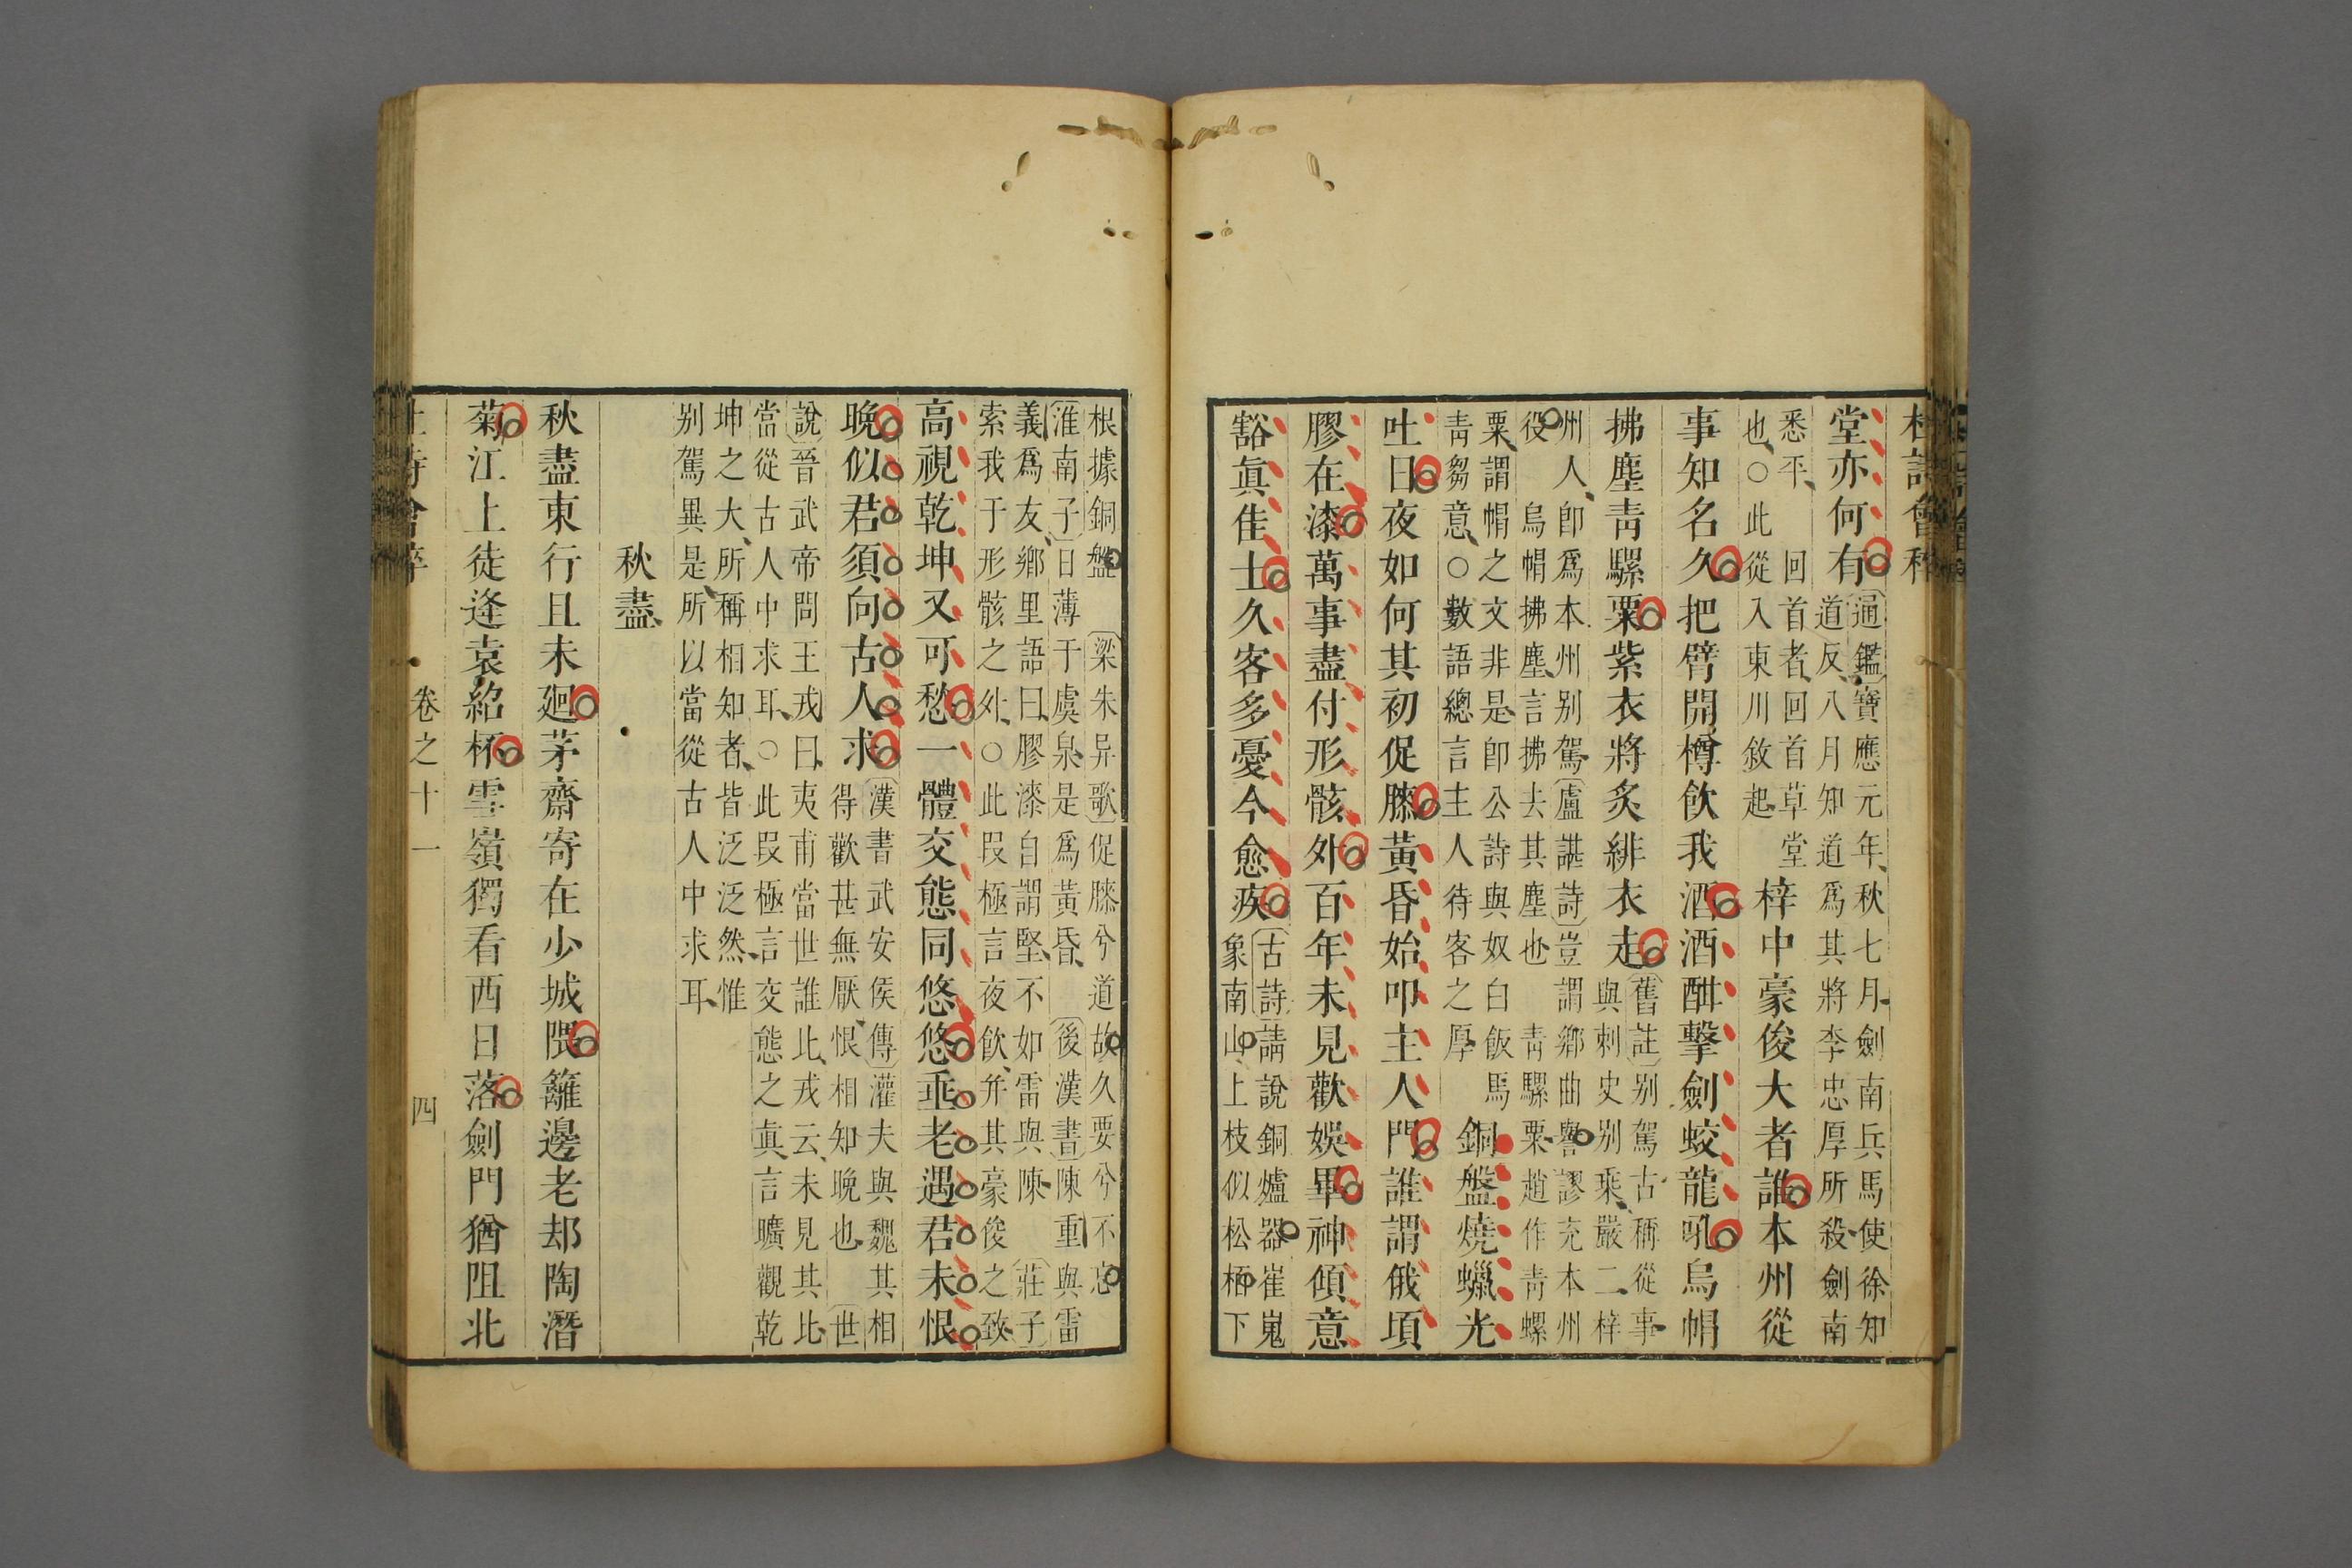 杜詩會稡
堂亦何有
〔通鑑〕寶應元年秋七月劍南兵馬使徐知
道反八月知道爲其將李忠厚所殺劍南
悉平　回首者回首草堂
也○此從入東川敘起
梓中豪俊大者誰本州從
事知名久把臂開樽飲我酒酒酣擊劍蛟龍吼烏帽
拂塵青騾粟紫衣將炙緋衣走
〔舊註〕别駕古稱從事
與刺史别乘嚴二梓
州人卽爲本州别駕〔盧諶詩〕豈謂鄉曲譽謬充本州
役　烏帽拂塵言拂去其塵也　青騾粟趙作青螺
粟謂帽之文非是卽公詩與奴白飯馬
青芻意○數語總言主人待客之厚
銅盤燒蠟光
吐日夜如何其初促膝黃昏始叩主人門誰謂俄頃
膠在漆萬事盡付形骸外百年未見歡娛畢神傾意
豁眞佳士久客多憂今愈疾
〔古詩〕請說銅爐器崔嵬
象南山上枝似松栢下
根據銅盤　〔梁朱异歌〕促膝兮道故久要兮不忘
〔淮南子〕日薄于虞泉是爲黃昏　〔後漢書〕陳重與雷
義爲友鄉里語曰膠漆自謂堅不如雷與陳　〔莊子〕
索我于形骸之外○此段極言夜飲并其豪俊之致
高視乾坤又可愁一體交態同悠悠垂老遇君未恨
晚似君須向古人求
〔漢書武安侯傳〕灌夫與魏其相
得歡甚無厭恨相知晚也　〔世
說〕晉武帝問王戎曰夷甫當世誰比戎云未見其比
當從古人中求耳○此段極言交態之眞言曠觀乾
坤之大所稱相知者皆泛泛然惟
别駕異是所以當從古人中求耳
秋盡
秋盡東行且未廻茅齋寄在少城隈籬邊老却陶潛
菊江上徒逢袁紹杯雪嶺獨看西日落劍門猶阻北
卷之十一
四